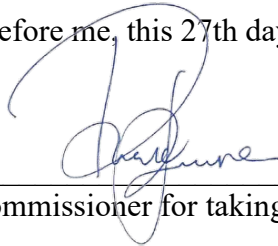 efore me, this 27th day
ommissioner for taking